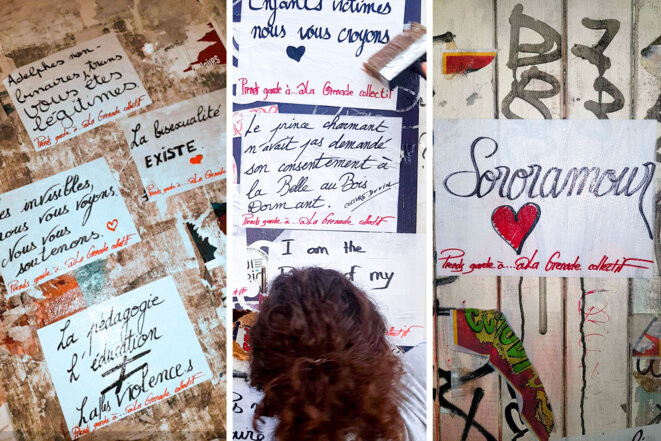 Adelphes non-
binaires, trans
vous êtes
légitimes
Prends garde à...@La Grenade collectif
La bisexualité
EXISTE.
Prends garde à...@La Grenade collectif
es invisibles,
nous vous voyons.
Nous vous
soutenons.
Prends garde à...@La Grenade collectif
La pédagogie
L'éducation
≠
La les violences
Prends garde à...@La Grenade collectif
Enfants victimes
nous vous croyons
Prends garde à...@La Grenade collectif
Le prince charmant
n'avait pas demandé
son consentement à
la Belle au Bois
Dormant.
CULTURE DU VIOL
Prends garde à...@La Grenade collectif
I am the
of my
collectif
Sororamour
Prends garde à...@La Grenade collectif